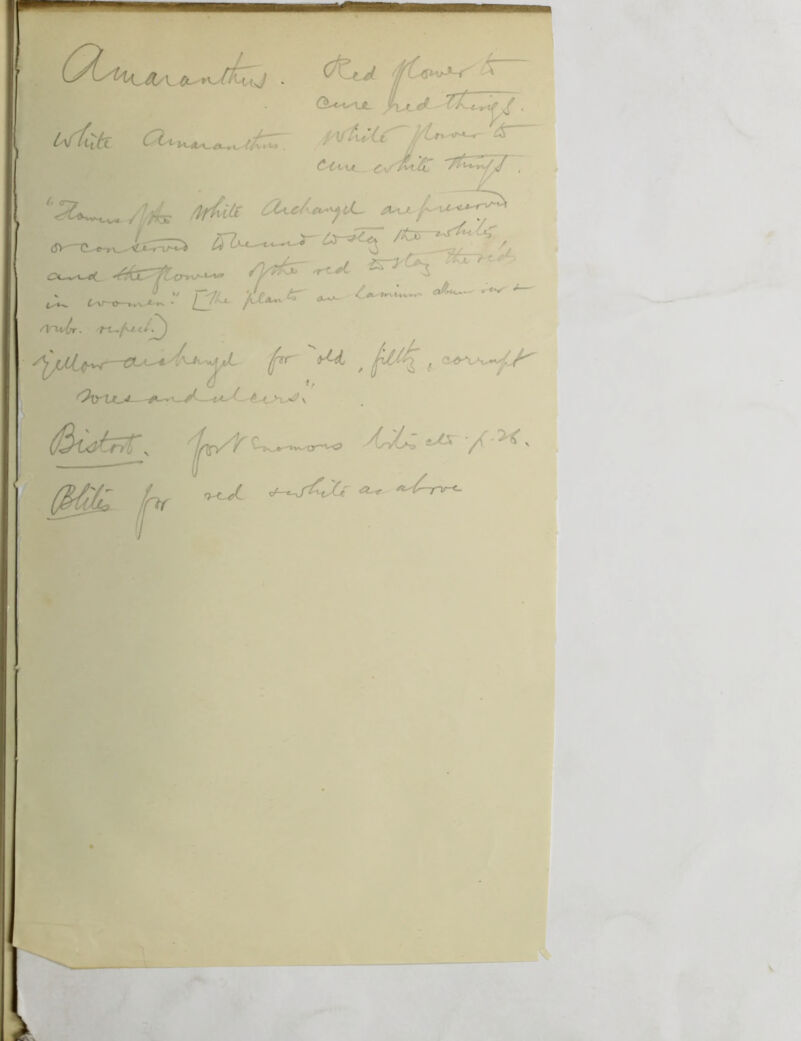 Amaranthus. Red flower to
cure red things.
White Amaranthus. White flower to
cure white things.
"Flowers of the White Archangel are preserved
or conserved to be used to stay the whites,
and the flowers of the red to stay the reds
in women." [The plants are Lamium album &
rubr. respect.)
Yellow archangel for "old, filthy, corrupt
sores and ulcers."
Bistort. for Venomous bites etc. p. 26.
Blites for red & white as above